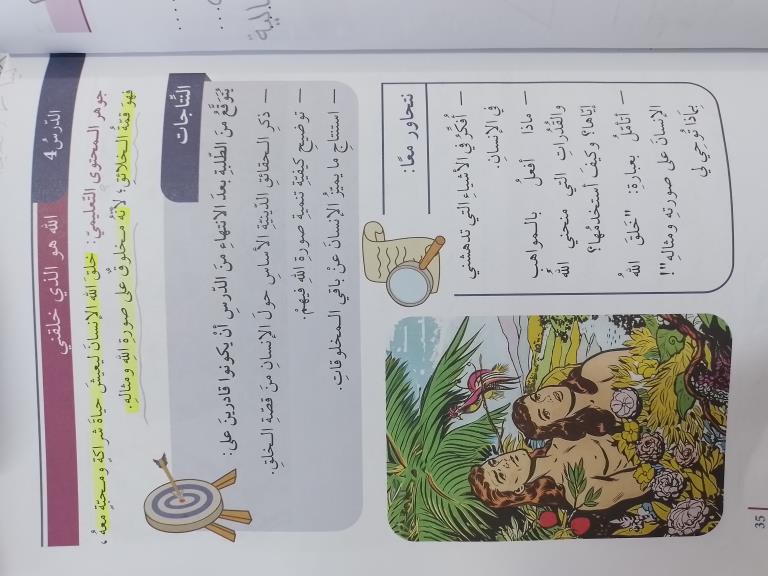 الدّرسُ 4
الله هو الذي خلقني
جوهر المحتوى التّعليميّ: خلقَ اللهُ الإنسانَ ليعيشَ حياةَ شراكةٍ ومحبّةٍ معهُ،
فهوَ قمّةُ الخلائقِ؛ لأنّهُ مخلوقٌ على صورةِ اللهِ ومثالِهِ.
النّتاجات
يُتَوَقَّعُ منَ الطّلَبةِ بعدَ الانتهاءِ منَ الدّرسِ أنْ يكونوا قادرينَ على:
– ذكرِ الحقائقِ الدّينيّةِ الأساسِ حولَ الإنسانِ من قصّةِ الخلقِ.
– توضيحِ كيفيّةِ تنميةِ صورةِ اللهِ فيهمْ.
– استنتاجِ ما يميّزُ الإنسانَ عنْ باقي المخلوقاتِ.
نتحاور معًا:
– أُفكِّرُ في الأشياءِ التي تدهشني
في الإنسانِ.
– ماذا أفعلُ بالمواهبِ
والقُدُراتِ التي منحني اللهُ
إيّاها؟ وكيفَ أستخدمُها؟
– أتأمّلُ بعبارةِ: "خلقَ اللهُ
الإنسانَ على صورتِهِ ومثالِهِ"!
بماذا تُوحي لي
35